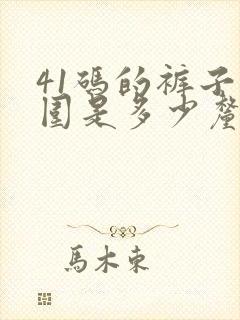 41碼的裤子
围是多少釐
馬木東